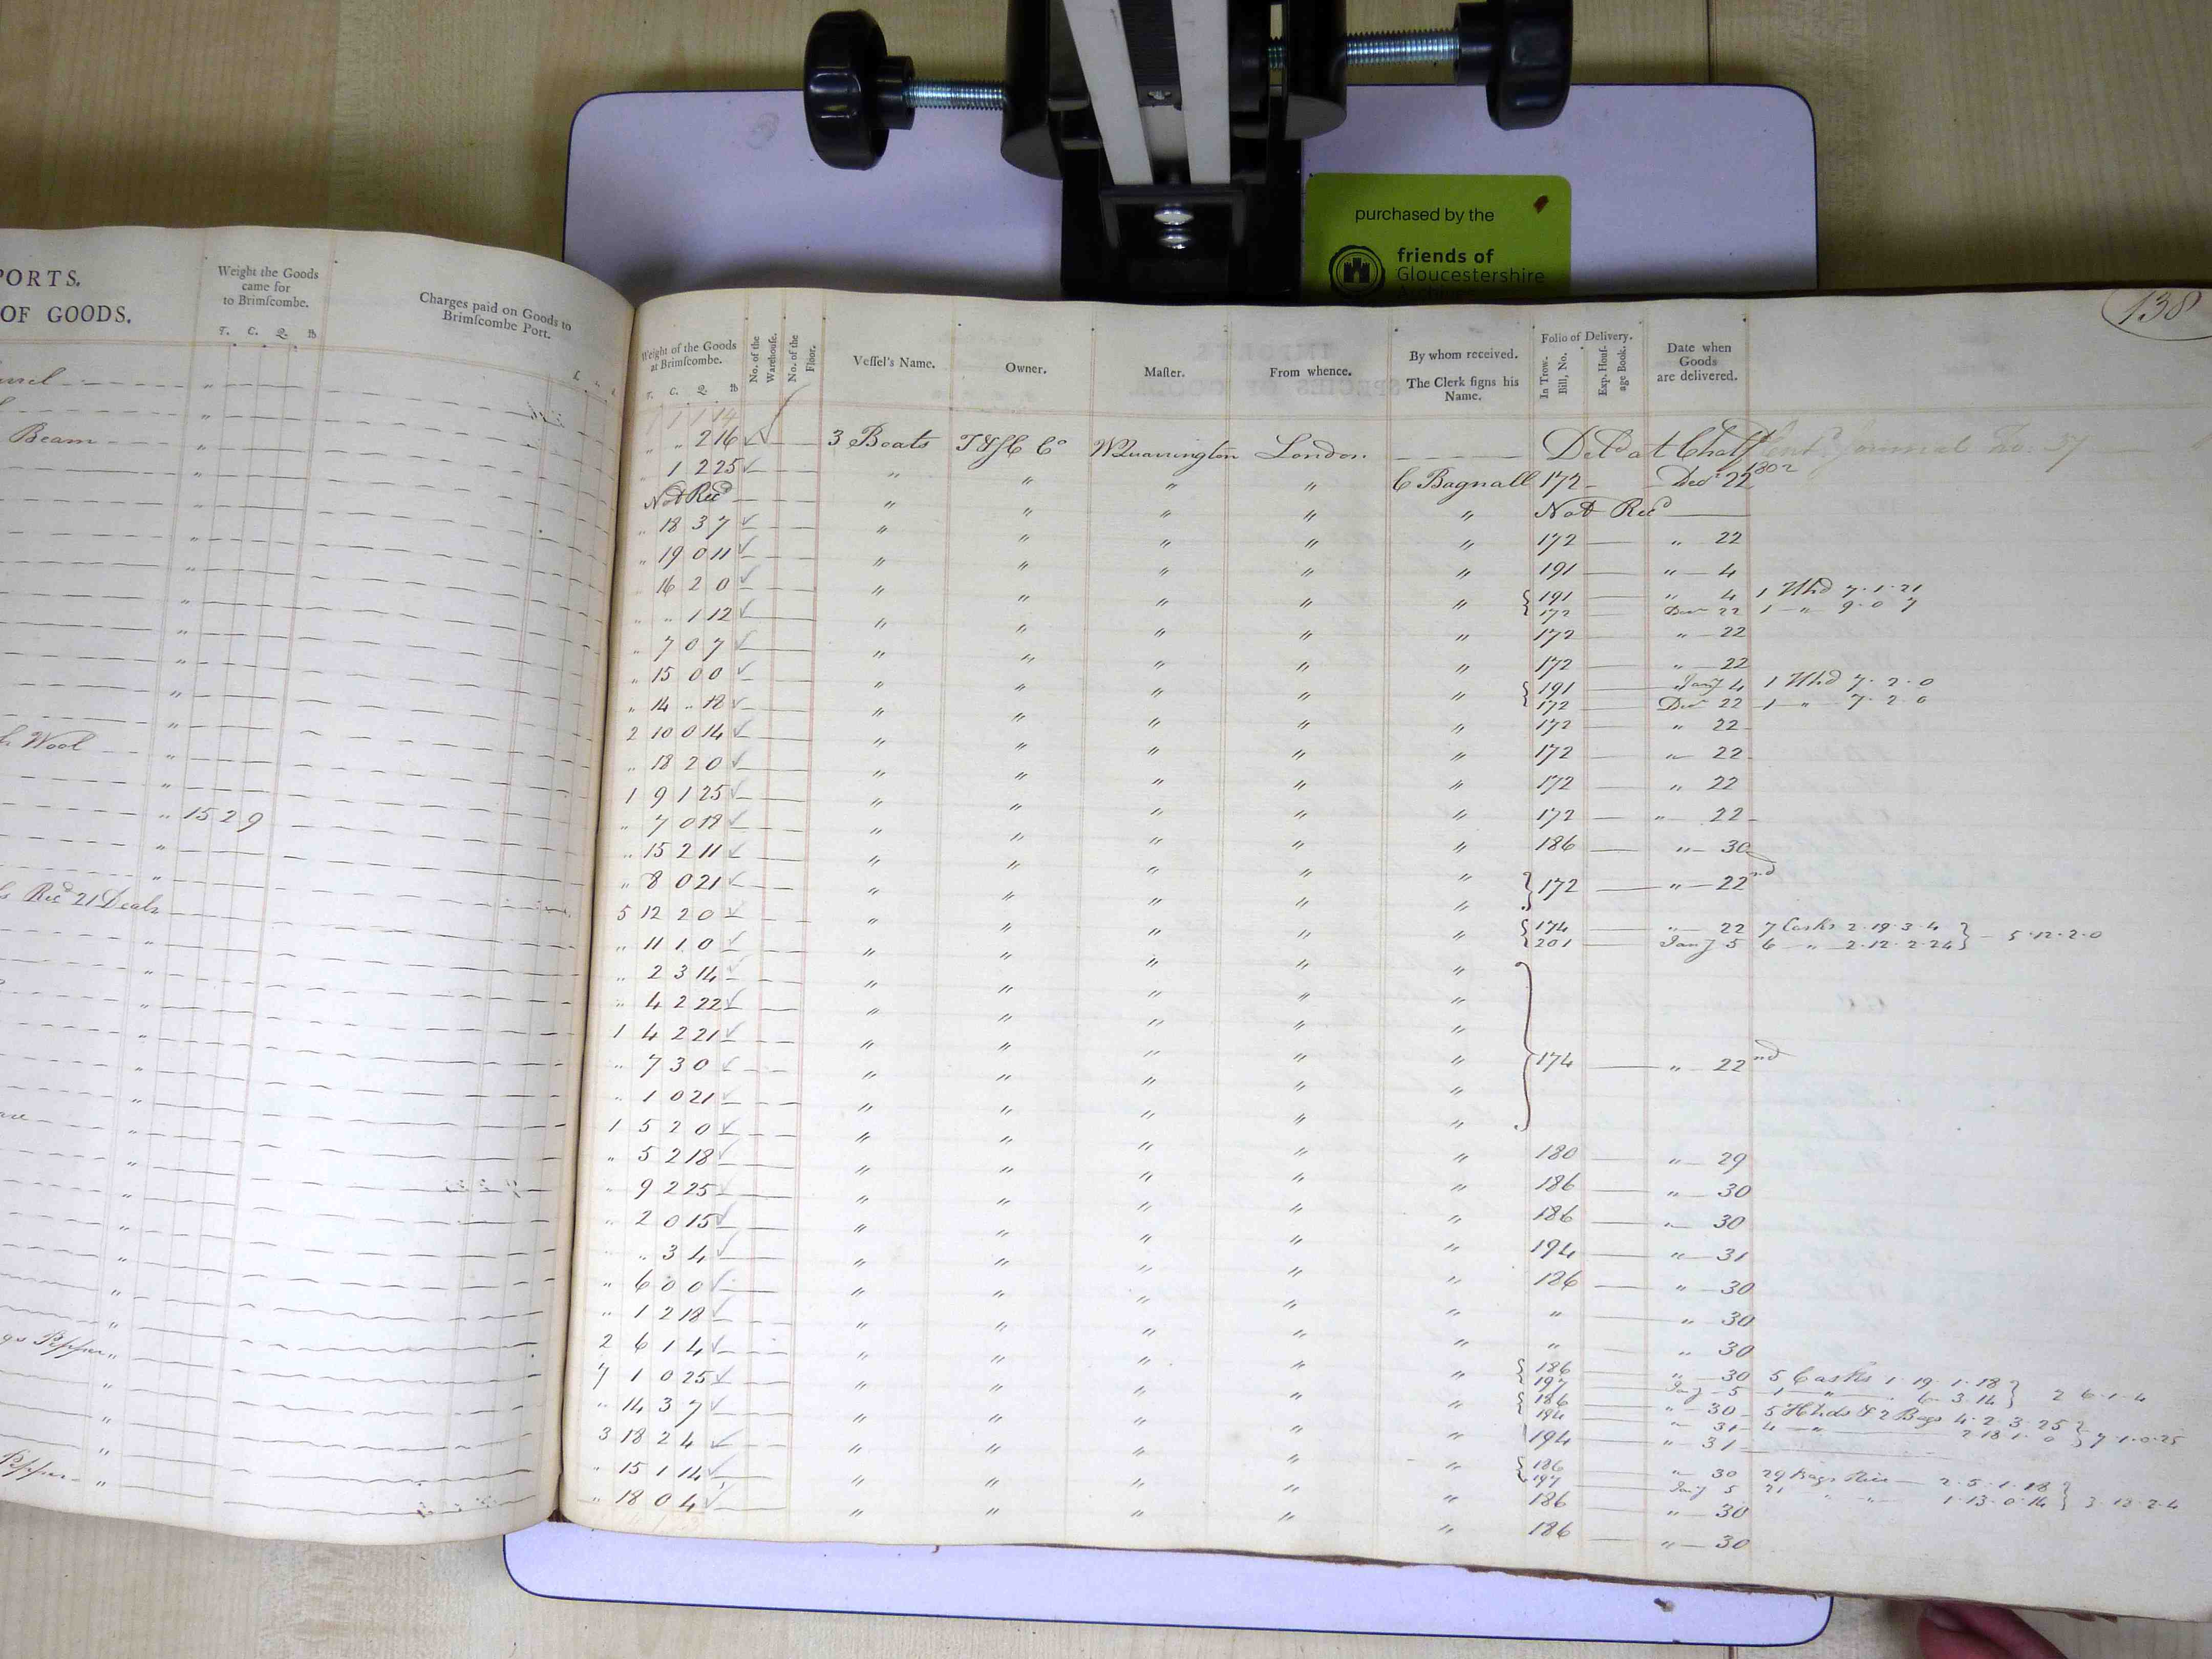 purchased by the
friends of
Gloucestershire
PORTS.
OF GOODS.
Weight the Goods
came for
to Brimſcombe.
T. C. Q. lb
Charges paid on Goods to
Brimſcombe Port.
Beam
Wool
" 15 2 9
Rec'd 21 Deals
138
Weight of the Goods
at Brimſcombe.
T. C. Q. lb
No. of the
Warehouſe.
No. of the
Floor.
Veſſel's Name.
Owner.
Maſter.
From whence.
By whom received.
The Clerk ſigns his
Name.
Folio of Delivery.
In Trow.
Bill, No.
Exp. Houſ-
age Book.
Date when
Goods
are delivered.
" " 2 16 3 Boats London
" 1 2 25 " " " " C Bagnall 172 Decr 22 1802
Not Recd " " " " " Not Recd
" 18 3 7 " " " " " 172 " 22
" 19 0 11 " " " " " 191 " 4
" 16 2 0 " " " " " 191 " 4 1 Hhd 7.1.21
172 Decr 22 1 " 9.0 7
" " 1 12 " " " " " 172 " 22
" 7 0 7 " " " " " 172 " 22
" 15 0 0 " " " " " 191 Jany 4 1 Hhd 7.2.0
172 Decr 22 1 " 7.2.0
" 14 " 12 " " " " " 172 " 22
2 10 0 14 " " " " " 172 " 22
" 18 2 0 " " " " " 172 " 22
1 9 1 25 " " " " " 172 " 22
" 7 0 18 " " " " " 186 " 30
" 15 2 11 " " " " " 172 " 22nd
" 8 0 21 " " " " "
5 12 2 0 " " " " " 174 " 22 7 Casks 2.19.3.4
201 Jany 5 6 " 2.12.2.24 } 5.12.2.0
" 11 1 0 " " " " "
" 2 3 14 " " " " "
" 4 2 22 " " " " "
1 4 2 21 " " " " " 174 " 22nd
" 7 3 0 " " " " "
" 1 0 21 " " " " "
1 5 2 0 " " " " " 180 " 29
" 5 2 18 " " " " " 186 " 30
" 9 2 25 " " " " " 186 " 30
" 2 0 15 " " " " " 194 " 31
" " 3 4 " " " " " 186 " 30
" 6 0 0 " " " " " " " 30
" 1 2 18 " " " " " " " 30
2 6 1 4 " " " " " 186 " 30 5 Casks 1.19.1.18
197 Jany 5 1 " 6.3.14 } 2 6.1.4
7 1 0 25 " " " " " 186 " 30 5 Hhds & 2 Bags 4.2.3.25
194 " 31 4 " 2 18 1.0 } 7.1.0.25
" 14 3 7 " " " " " 194 " 31
3 18 2 4 " " " " " 186 " 30 29 Bags 2.5.1.18
197 Jany 5 21 " " 1.13.0.14 } 3.18.2.4
" 15 1 14 " " " " " 186 " 30
" 18 0 4 " " " " " 186 " 30